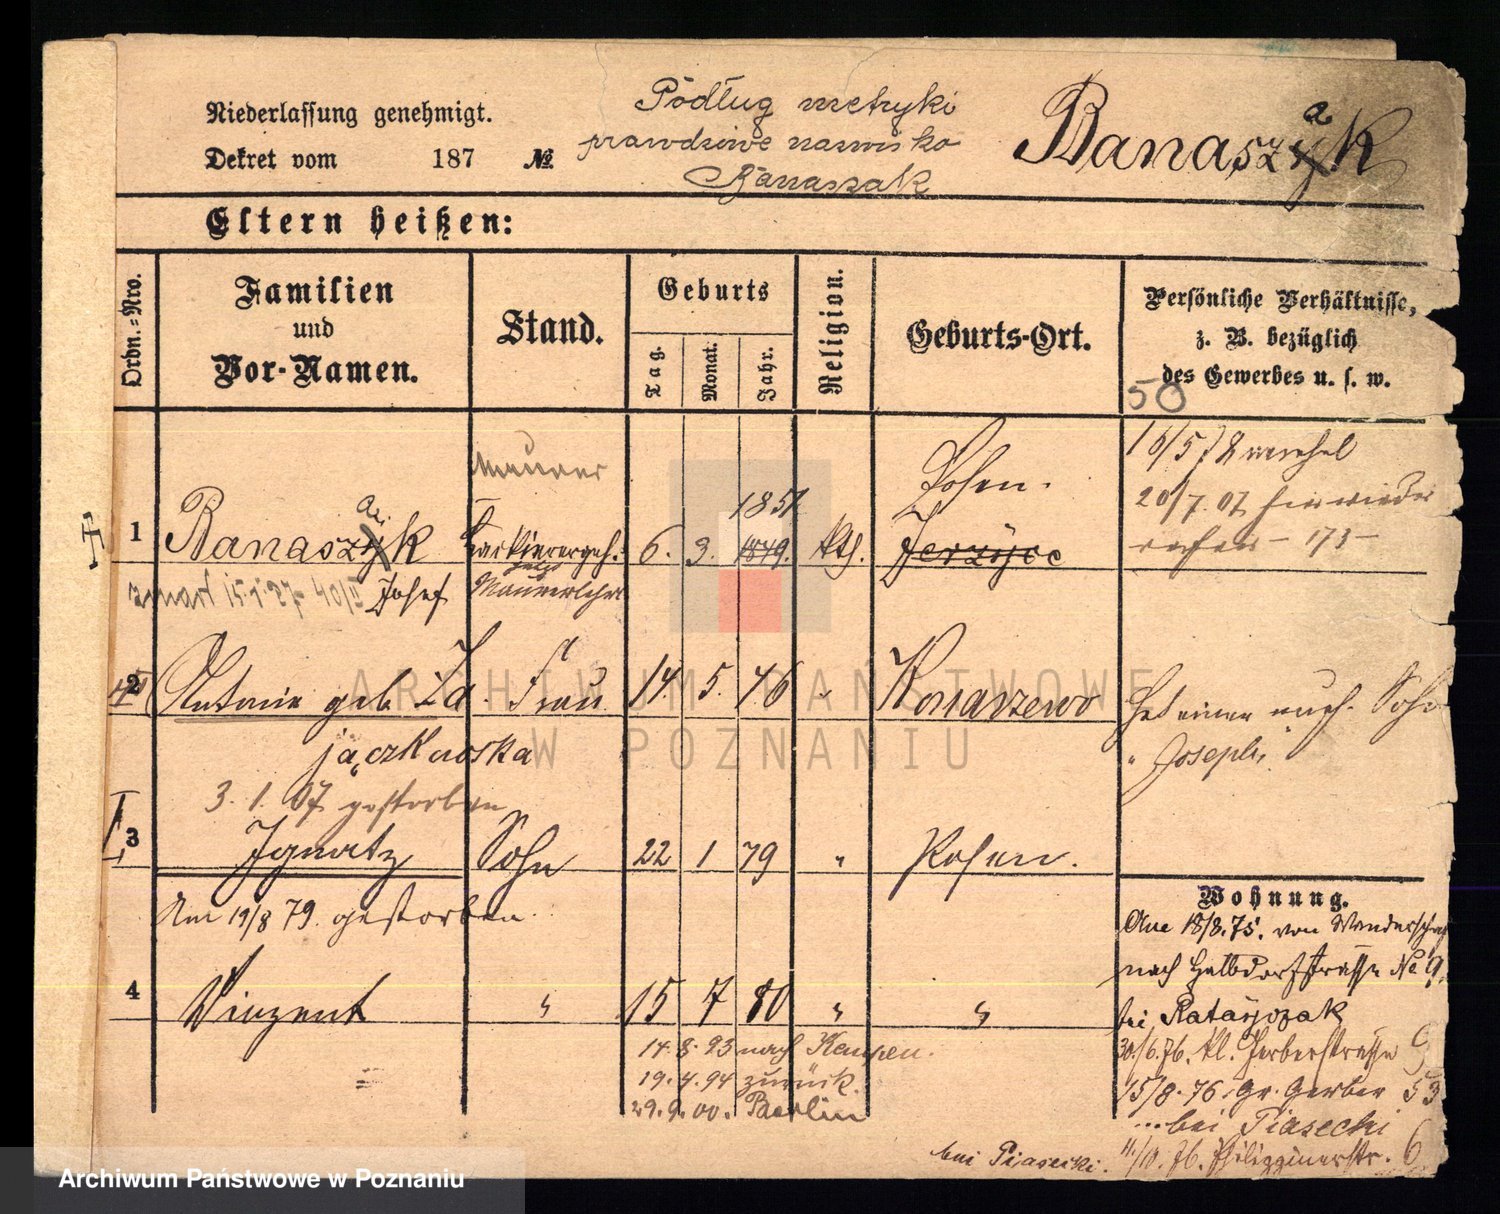 Niederlassung genehmigt.
Dekret vom 187 №
Podług metryki
prawdziwe nazwisko
Banaszak
Banaszyk
a
Eltern heißen:
Ordn.-Nro.
Familien
und
Vor-Namen.
Stand.
Geburts
Tag.
Monat.
Jahr.
Religion.
Geburts-Ort.
Persönliche Verhältnisse,
z. B. bezüglich
des Gewerbes u. s. w.
50
1
Banaszyk
a
Josef
Maurer
6. 3. 1849.
1851
kth.
Posen.
Jerzyce
20/7. 07
173
2
Antonie geb. Za
jączkowska
Frau
14. 5. 46
"
Konarzewo
Hat einen uneh. Sohn
"Joseph"
3. 1. 07 gestorben
3
Ignatz
Sohn
22 1 79
"
Posen.
Am 19/8 79. gestorben.
4
Vinzent
"
15 7 80
"
"
14. 8. 93 nach Kempen.
19. 4. 94 zurück.
29. 9. 00. Berlin
Wohnung.
18/8. 75. von Wanderschaft
nach Halbdorfstrasse No 9.
bei Ratajczak
30./6. 76. kl. Gerberstrasse 9
15/8. 76. Gr. Gerber 53
bei Piasecki
11/10. 76. Philippinerstr. 6
bei Piasecki.
ARCHIWUM PAŃSTWOWE
W POZNANIU
Archiwum Państwowe w Poznaniu